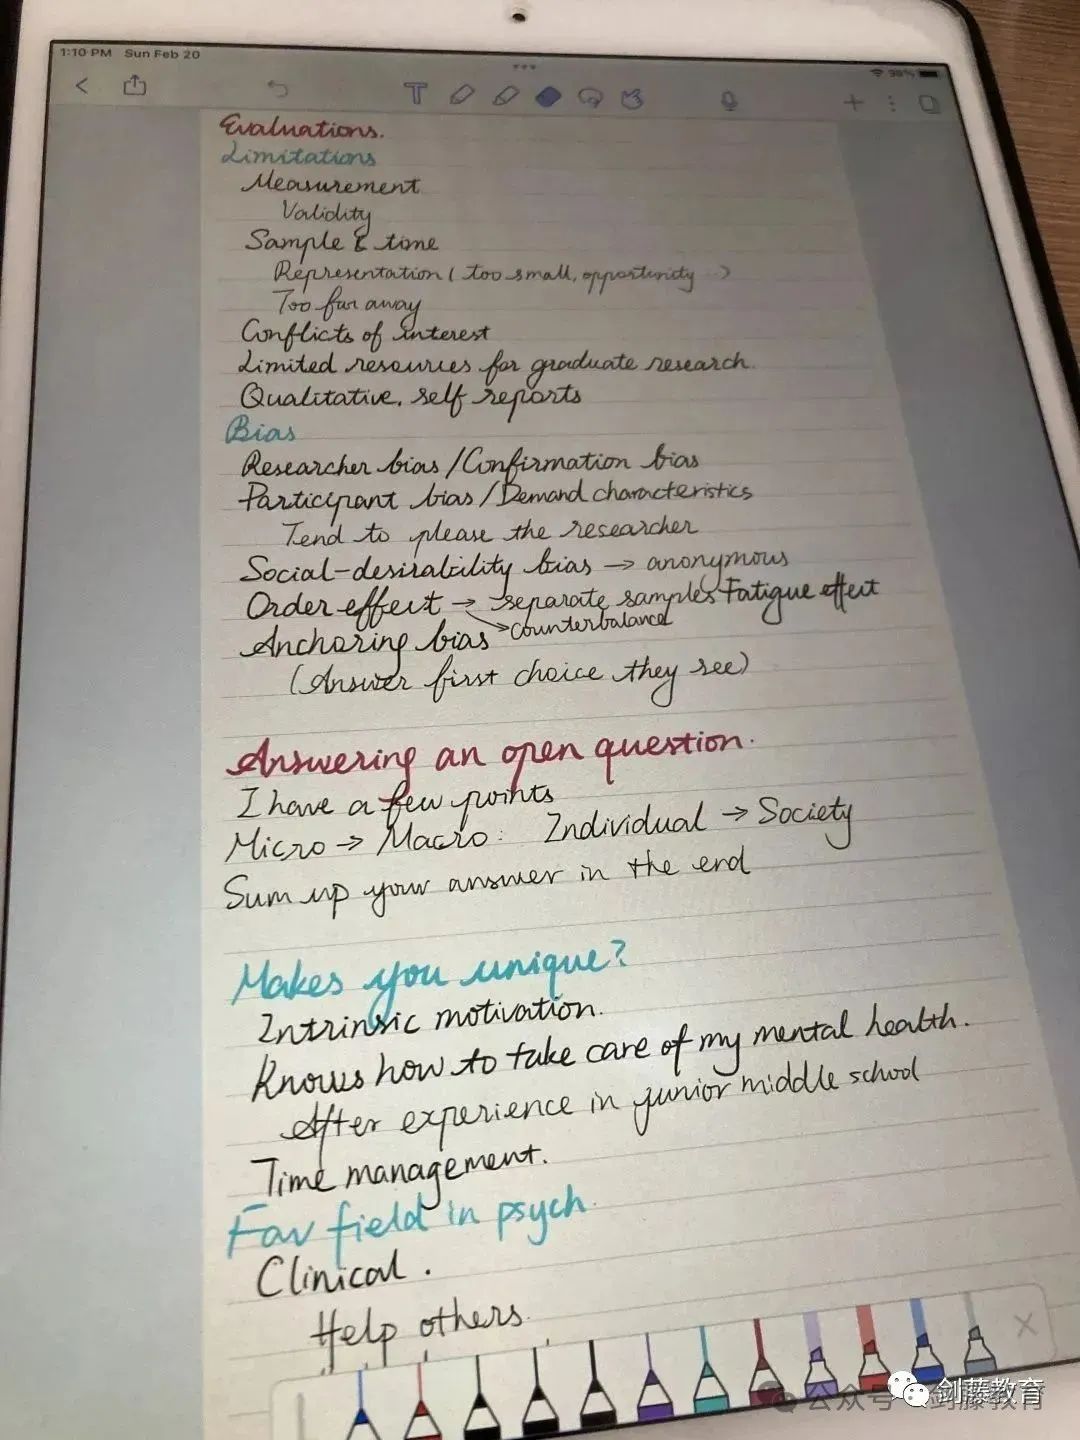 1:10 PM Sun Feb 20
38%
Evaluations.
Limitations
Measurement
Validity
Sample & time
Representation ( too small, opportunity )
Too far away
Conflicts of interest
Limited resources for graduate research.
Qualitative, self reports
Bias
Researcher bias / Confirmation bias
Participant bias / Demand characteristics
Tend to please the researcher
Social-desirability bias → anonymous
Order effect → separate samples Fatigue effect
→ counterbalance
Anchoring bias
(Answer first choice they see)
Answering an open question.
I have a few points
Micro → Macro: Individual → Society
Sum up your answer in the end
Makes you unique?
Intrinsic motivation.
Knows how to take care of my mental health.
After experience in junior middle school
Time management.
Fav field in psych.
Clinical.
Help others
公众号 剑藤教育
剑藤教育